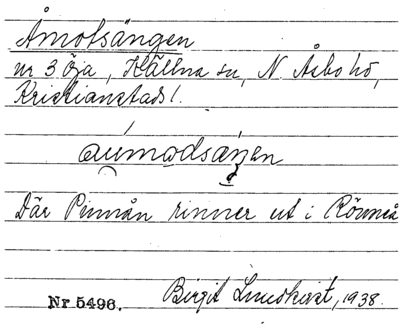 Åmotsängen
nr 3 Öja, Källna sn, N. Åsbo hd,
Kristianstads l.
aúmodsäŋen
Där Pinnån rinner ut i Rönneå
Birgit Lundkvist, 1938.
Nr 5496.